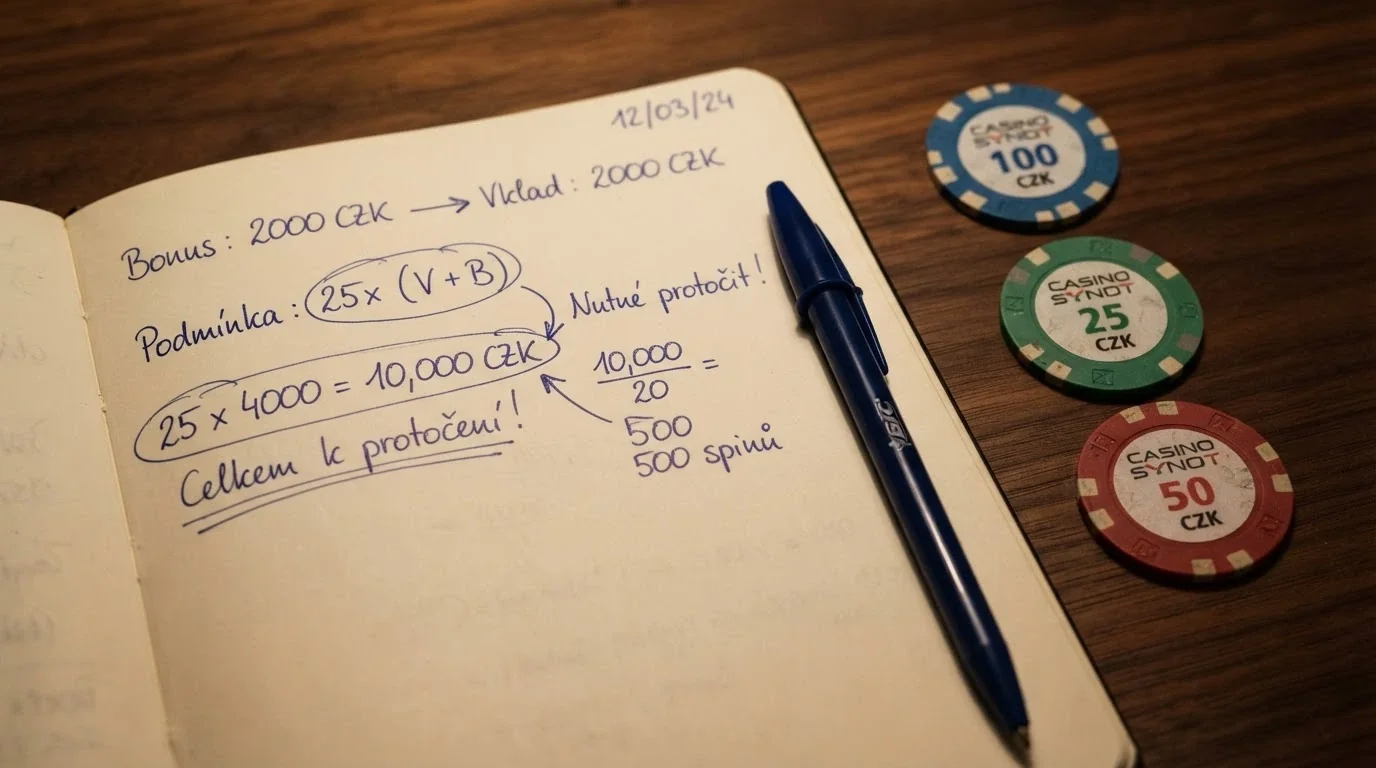 12/03/24
Bonus: 2000 CZK → Vklad: 2000 CZK
Podmínka: 25x (V + B)
Nutné protočit!
25 x 4000 = 10,000 CZK
Celkem k protočení!
10,000
20
=
500
500 spinů
BIC
CASINO
SYNOT
100
CZK
CASINO
SYNOT
25
CZK
CASINO
SYNOT
50
CZK